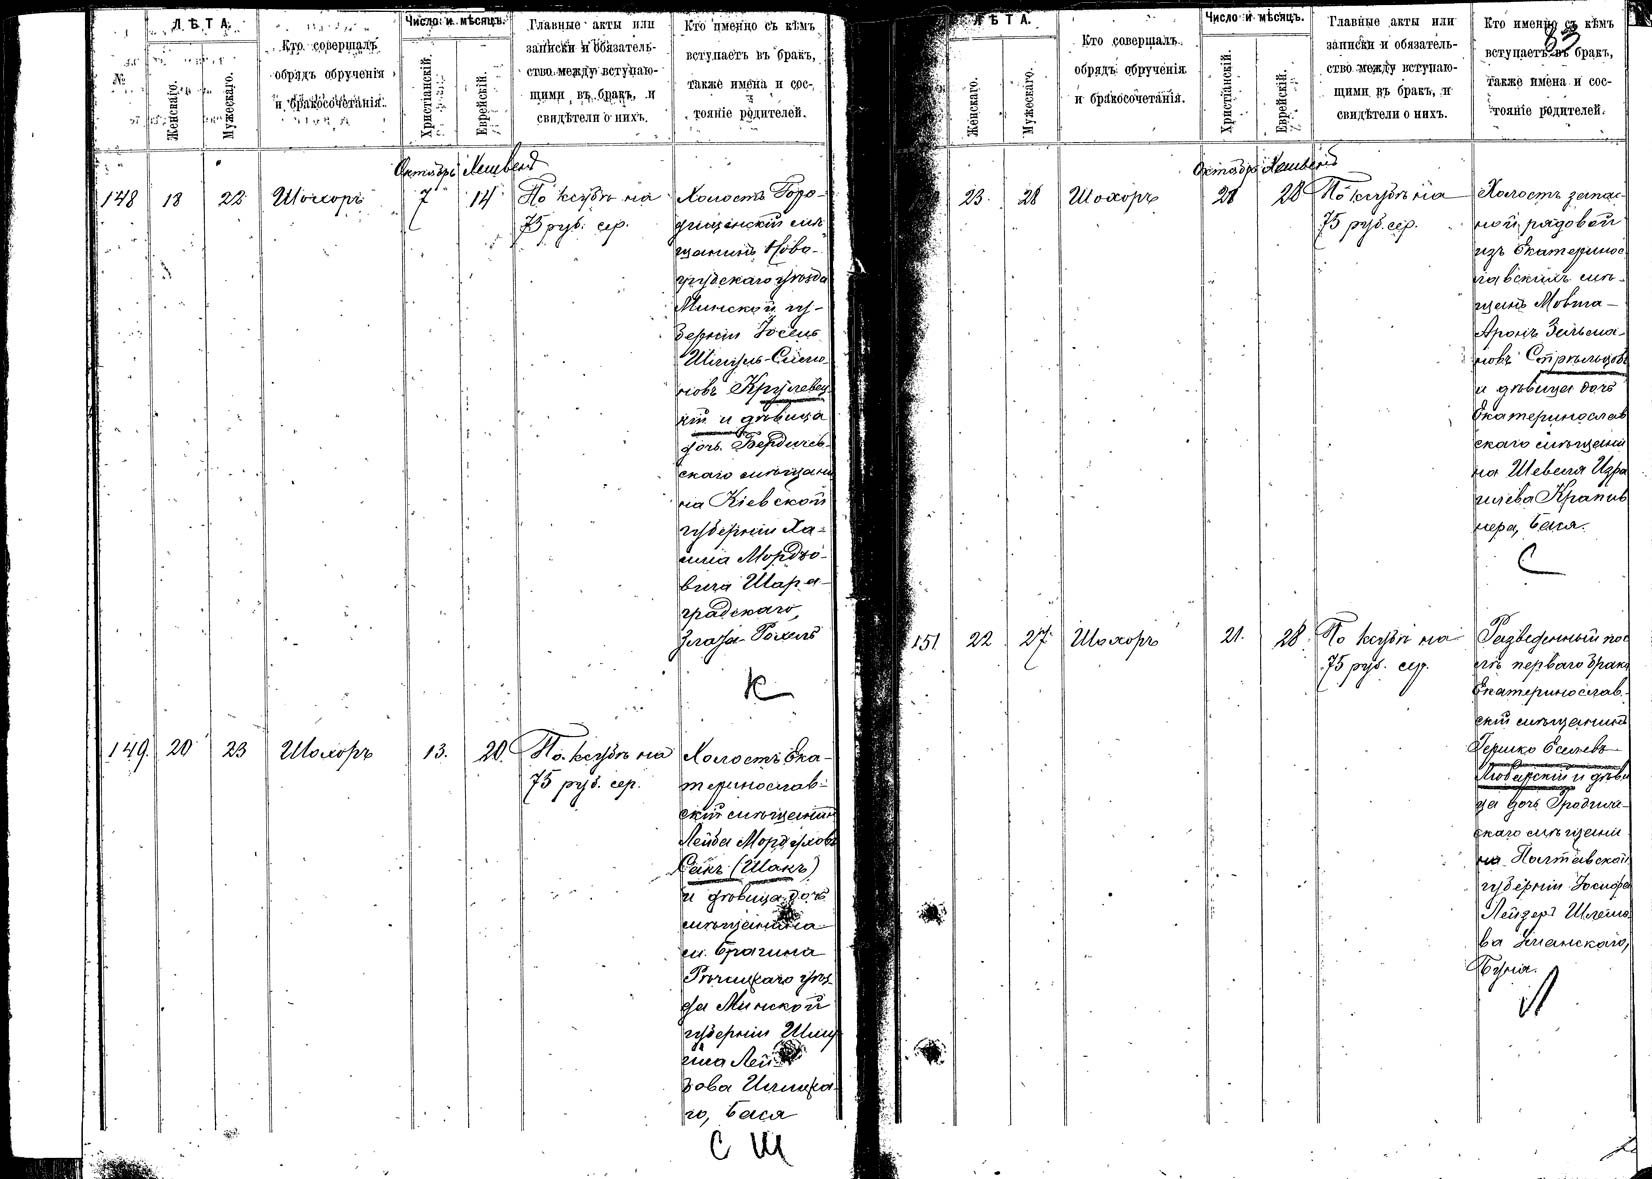 №
ЛѢТА.
Женскаго.
Мужескаго.
Кто совершалъ
обрядъ обрученія
и бракосочетанія.
Число и мѣсяцъ.
Христіанскій.
Еврейскій.
Главные акты или
записки и обязатель-
ство между вступаю-
щими въ бракъ, и
свидѣтели о нихъ.
Кто именно съ кѣмъ
вступаетъ въ бракъ,
также имена и сос-
тояніе родителей.
Октябрь Хешвенъ
148 18 22 Шохоръ 7 14
По ксубѣ на
75 руб. сер.
Холостъ Горо-
дищенскій мѣ-
щанинъ Ново-
грудскаго уѣзда
Минской гу-
берніи Іосель
Шмуль-Симо
новъ Крулевец
кій и дѣвица
дочь Бердичев-
скаго мѣщани
на Кіевской
губерніи Ха-
има Мордко-
вича Шара-
градскаго,
Злата-Рохель
К
149. 20 23 Шохоръ 13. 20.
По ксубѣ на
75 руб. сер.
Холостъ Ека-
теринослав-
скій мѣщанинъ
Лейба Мордуховъ
Сакъ (Шакъ)
и дѣвица дочь
мѣщанина
м. Брагина
Рѣчицкаго уѣз-
да Минской
губерніи Шму
ила Лей
зова Илицка-
го, Бася
С Ш
83
ЛѢТА.
Женскаго.
Мужескаго.
Кто совершалъ
обрядъ обрученія
и бракосочетанія.
Число и мѣсяцъ.
Христіанскій.
Еврейскій.
Главные акты или
записки и обязатель-
ство между вступаю-
щими въ бракъ, и
свидѣтели о нихъ.
Кто именно съ кѣмъ
вступаетъ въ бракъ,
также имена и сос-
тояніе родителей.
Октябрь Хешвенъ
23 28 Шохоръ 21 28
По ксубѣ на
75 руб. сер.
Холостъ запас-
ной рядовой
изъ Екатеринос
лавскихъ мѣ-
щанъ Мовша-
Аронъ Зельма-
новъ Стрѣльцовъ
и дѣвица дочь
Екатеринослав
скаго мѣщани
на Шевеля Изра
илева Крапив
нера, Бася.
С
151 22 27 Шохоръ 21. 28.
По ксубѣ на
75 руб. сер.
Разведенный пос
лѣ перваго брака
Екатеринослав-
скій мѣщанинъ
Гершко Еселевъ
Любарскій и дѣви
ца дочь Градиж-
скаго мѣщани
на Полтавской
губерніи Іосифа
Лейзера Шлемо
ва Уманскаго,
Буня.
Л